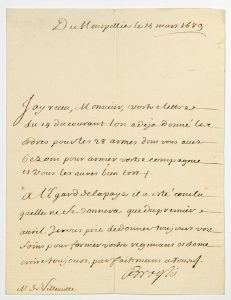 De Montpellier le 15 mars 1689
J'ay receu, Monsieur, vostre lettre
du 19 du courant l'on a deja donné les
ordres pour les 28 armes dont vous avez
besoin pour armer vostre compagnie
et vous les aurez bien tost
A l'Egard de la paye il a esté conclu
qu'elle ne se donnera que du premier
avril. Je vous prie de donner toujours vos
soins pour former vostre regiment et de me
croire toujours parfaitement a vous
Broglie
Mr de Villevieille